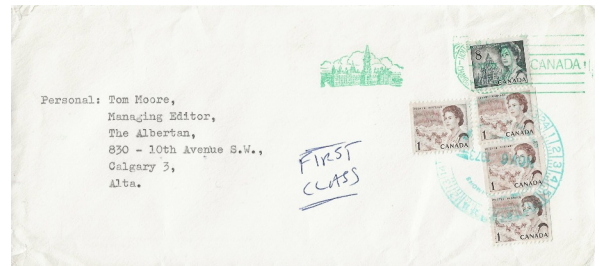 Personal: Tom Moore,
Managing Editor,
The Albertan,
830 - 10th Avenue S.W.,
Calgary 3,
Alta.
FIRST
CLASS
8
CANADA
CANADA
1
CANADA
1
CANADA
1
CANADA
1
CANADA